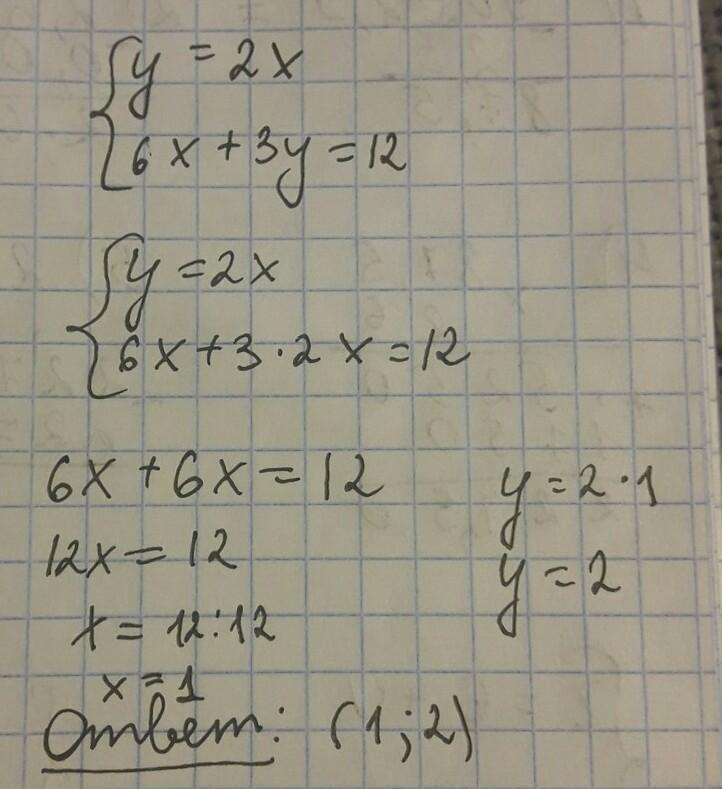 y = 2x
6x + 3y = 12
y = 2x
6x + 3 · 2x = 12
6x + 6x = 12
12x = 12
x = 12 : 12
x = 1
y = 2 · 1
y = 2
Ответ: (1; 2)